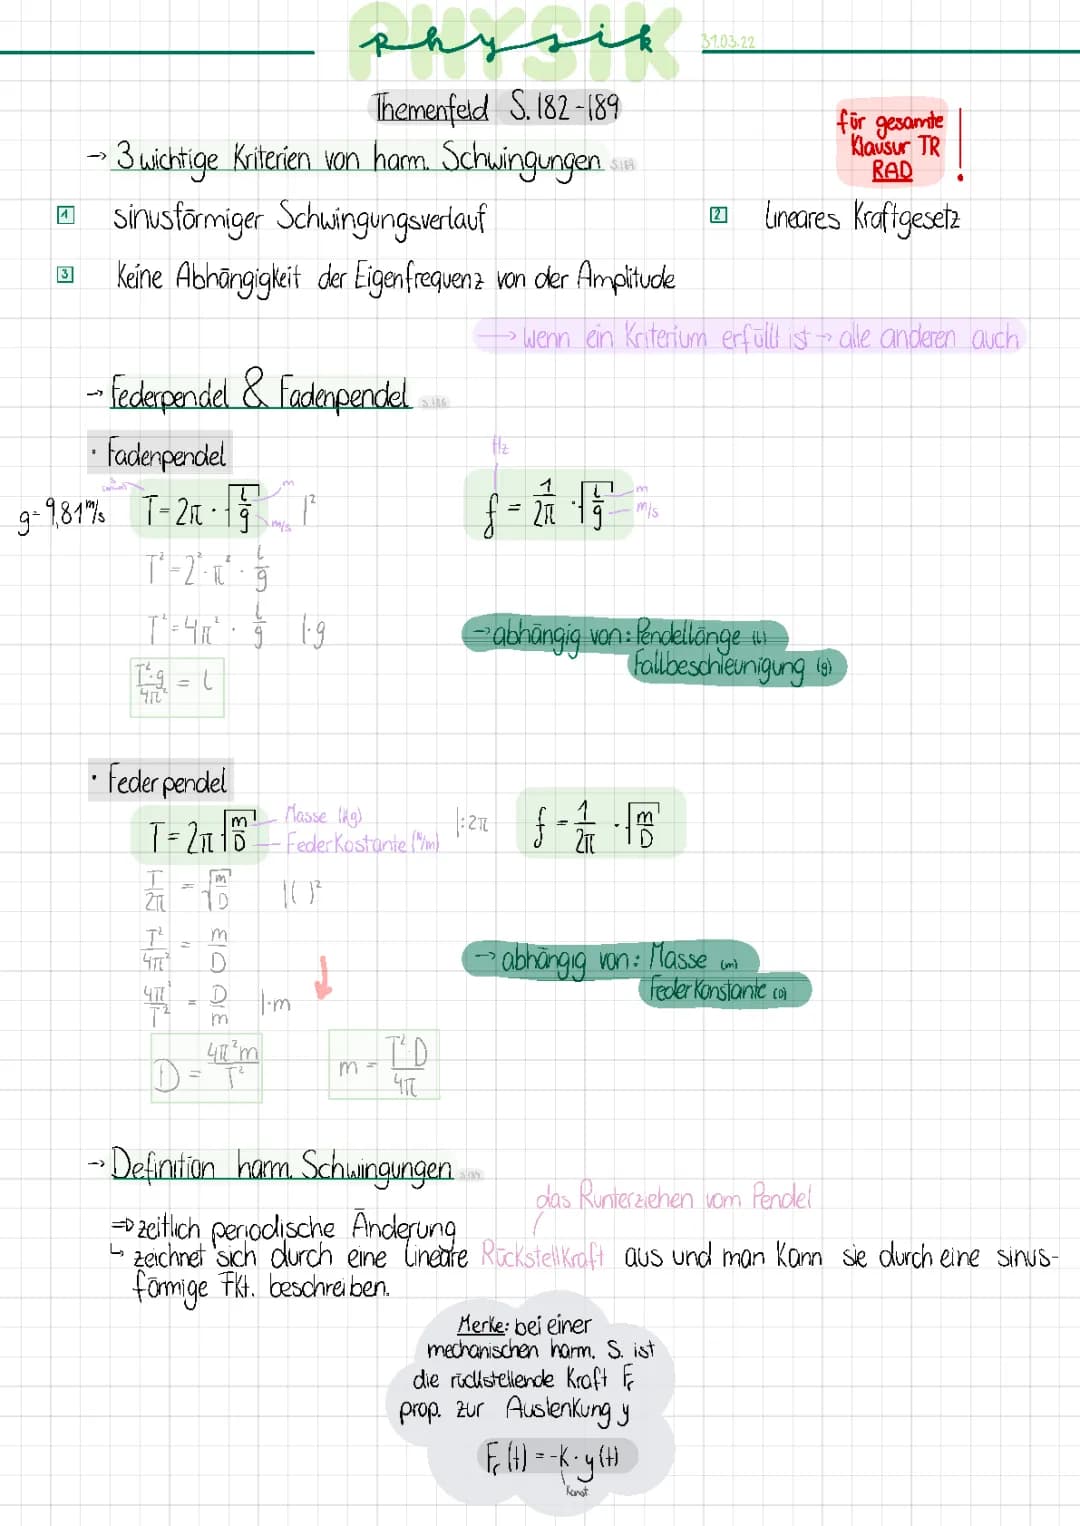 PHYSIK
physik
31.03.22
Themenfeld S. 182-189
für gesamte
Klausur TR
RAD
!
→ 3 wichtige Kriterien von harm. Schwingungen
1 sinusförmiger Schwingungsverlauf
2 lineares Kraftgesetz
3 Keine Abhängigkeit der Eigenfrequenz von der Amplitude
→ wenn ein Kriterium erfüllt ist → alle anderen auch
→ Federpendel & Fadenpendel S.186
· Fadenpendel
g=9,81 m/s T=2π · √(l/g) m m/s |²
Hz
f = 1/2π · √(l/g) m m/s
T²=2²·π²· l/g
T²=4π² · l/g |·g
T²·g/4π² = l
→ abhängig von: Pendellänge (l)
Fallbeschleunigung (g)
· Federpendel
T=2π √(m/D) Masse (kg)
FederKostante (N/m) |:2π
f = 1/2π · √(m/D)
T/2π = √(m/D) |( )²
T²/4π² = m/D
4π²/T² = D/m |·m
D = 4π²m/T²
m = T²D/4π
→ abhängig von: Masse (m)
FederKonstante (D)
→ Definition harm. Schwingungen
das Runterziehen vom Pendel
⇒ zeitlich periodische Änderung
↳ zeichnet sich durch eine lineare Rückstellkraft aus und man kann sie durch eine sinus-
förmige Fkt. beschreiben.
Merke: bei einer
mechanischen harm. S. ist
die rückstellende Kraft Fr
prop. zur Auslenkung y
Fr (t) = -K · y(t)
Konst